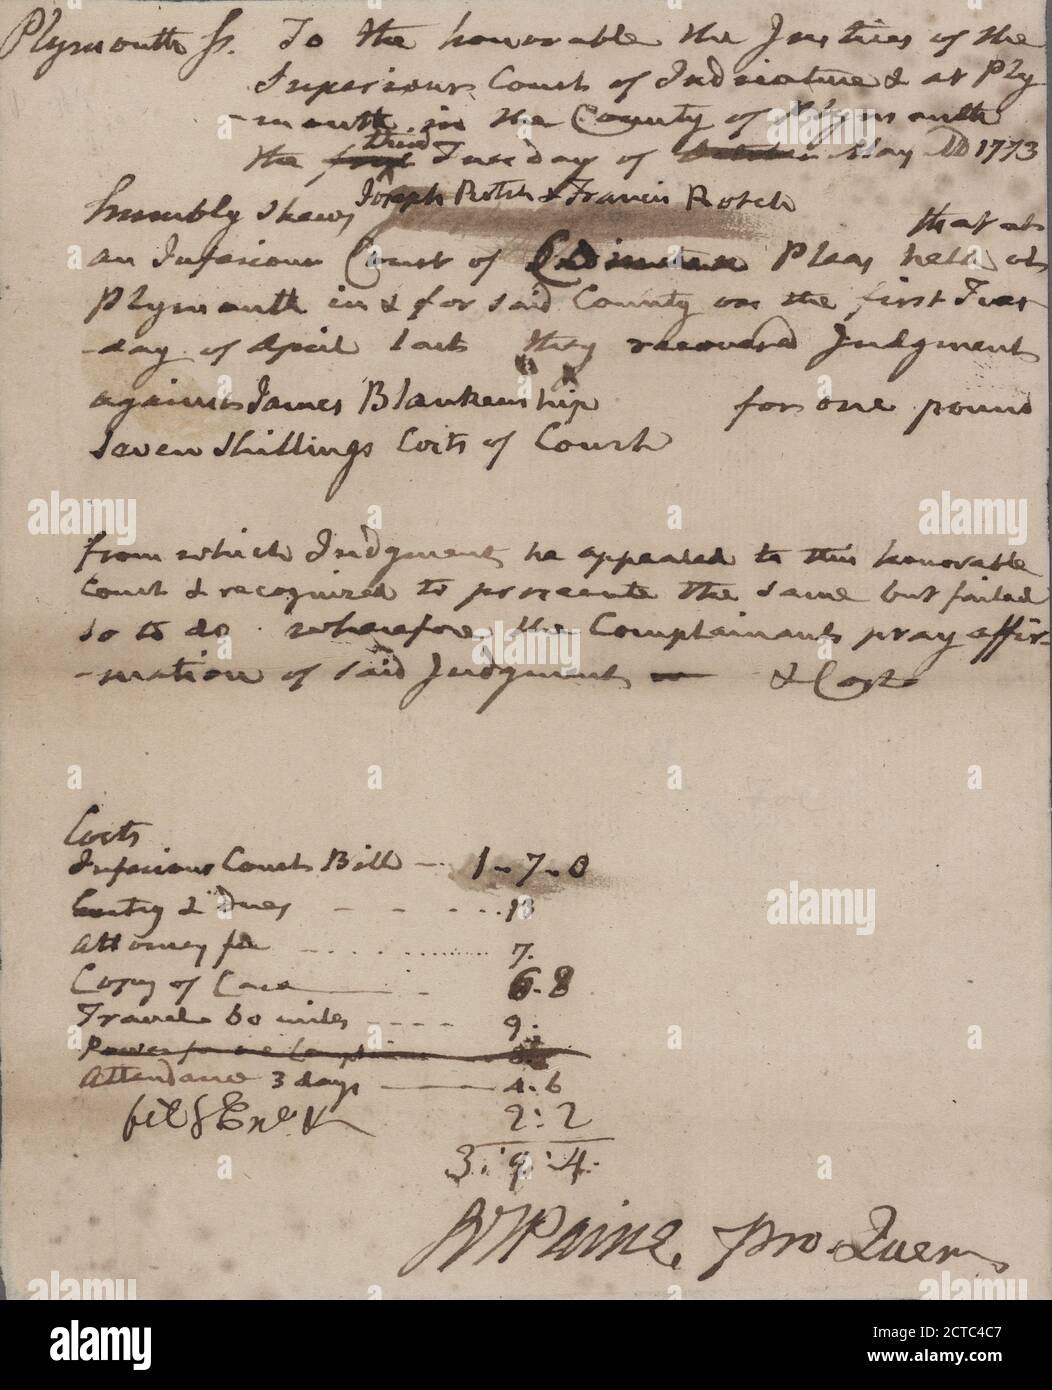 Plymouth ss. To the honorable the Justices of the
Superiour Court of Judicature & at Ply
-mouth in the County of Plymouth
third
the first Tuesday of October May AD 1773
humbly shews Joseph Rotch & Francis Rotch that at
an Inferiour Court of Common Pleas held at
Plymouth in & for said County on the first Tues
-day of April last they recovered Judgment
against James Blankenship for one pound
seven shillings Costs of Court
from which Judgment he appealed to this honorable
Court & recognized to prosecute the same but failed
so to do. wherefore the Complainants pray affir-
-mation of said Judgment & Costs
Costs
Inferiour Courts Bill 1-7-0
Entry & Dues 13
Attorney fee 7.
Copy of Case 6.8
Travel 60 miles 9:
Power for
Attendance 3 days 4.6
2:2
3:9:4.
RTPaine, pro Quer
alamy
a
Image ID: 2CTC4C7
www.alamy.com